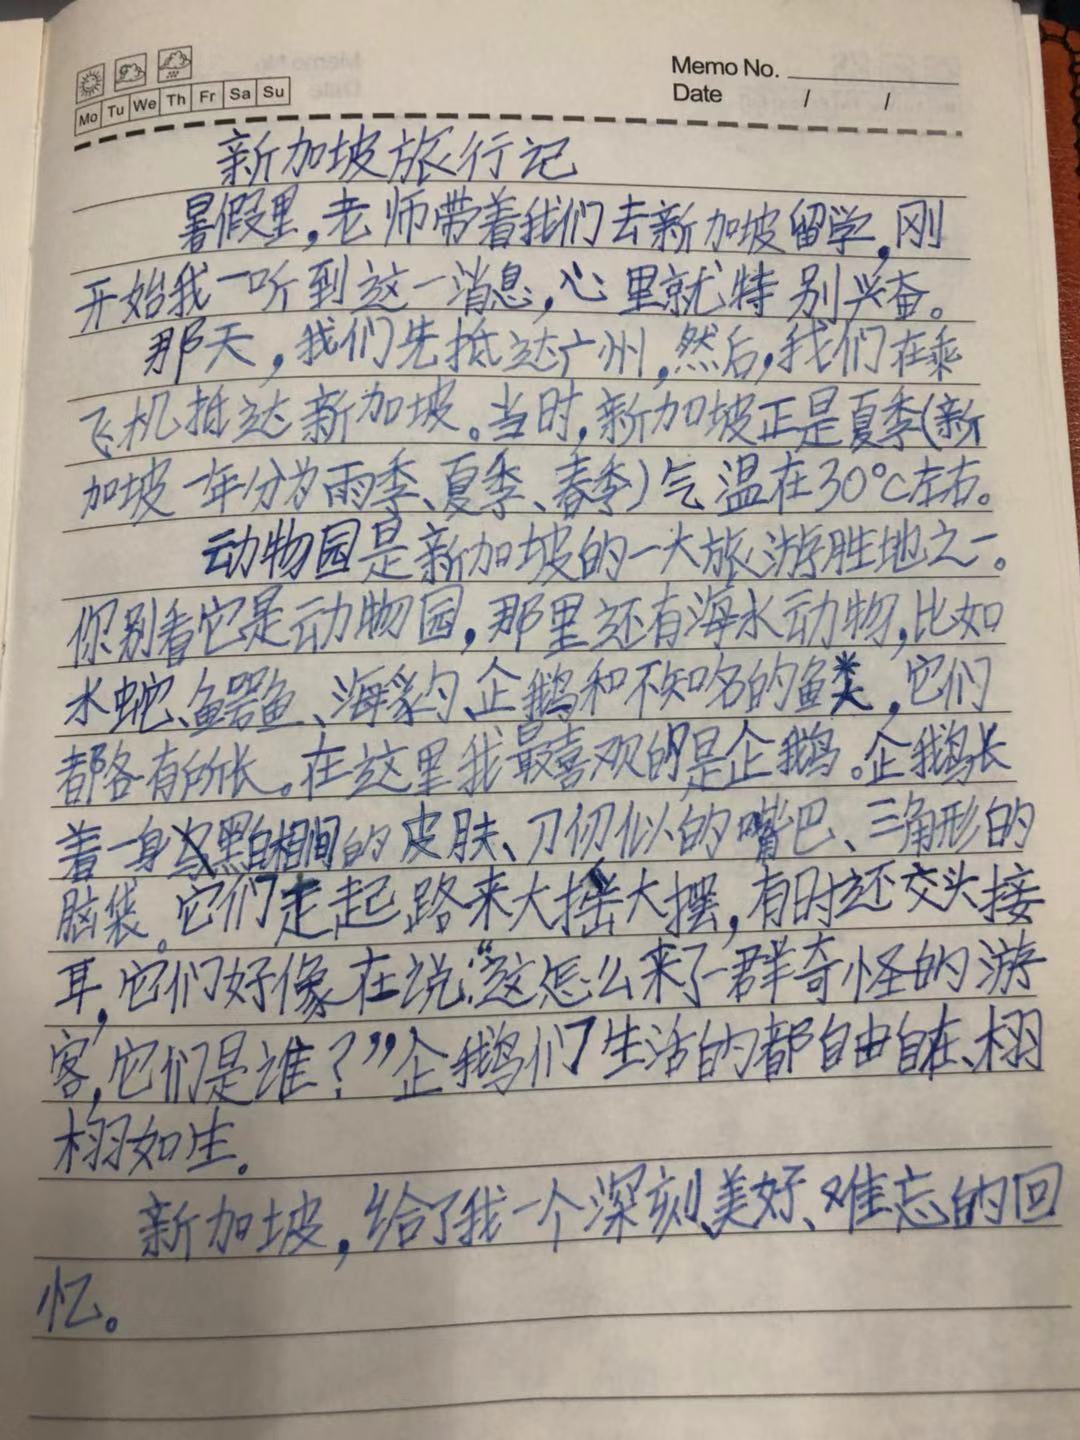 Memo No.
Mo Tu We Th Fr Sa Su
Date / /
新加坡旅行记
暑假里,老师带着我们去新加坡留学,刚
开始我一听到这一消息,心里就特别兴奋。
那天,我们先抵达广州,然后,我们在乘
飞机抵达新加坡。当时,新加坡正是夏季(新
加坡一年分为雨季、夏季、春季)气温在30°C左右。
动物园是新加坡的一大旅游胜地之一。
你别看它是动物园,那里还有海水动物,比如
水蛇、鳄鱼、海豹、企鹅和不知名的鱼类,它们
都各有所长。在这里我最喜观的是企鹅。企鹅长
着一身黑白相间的皮肤、刀仞似的嘴巴、三角形的
脑袋。它们走起路来大摇大摆,有时还交头接
耳,它们好像在说:“这怎么来了一群奇怪的游
客,它们是谁?”企鹅们生活的都自由自在、栩
栩如生。
新加坡,给了我一个深刻、美好、难忘的回
忆。